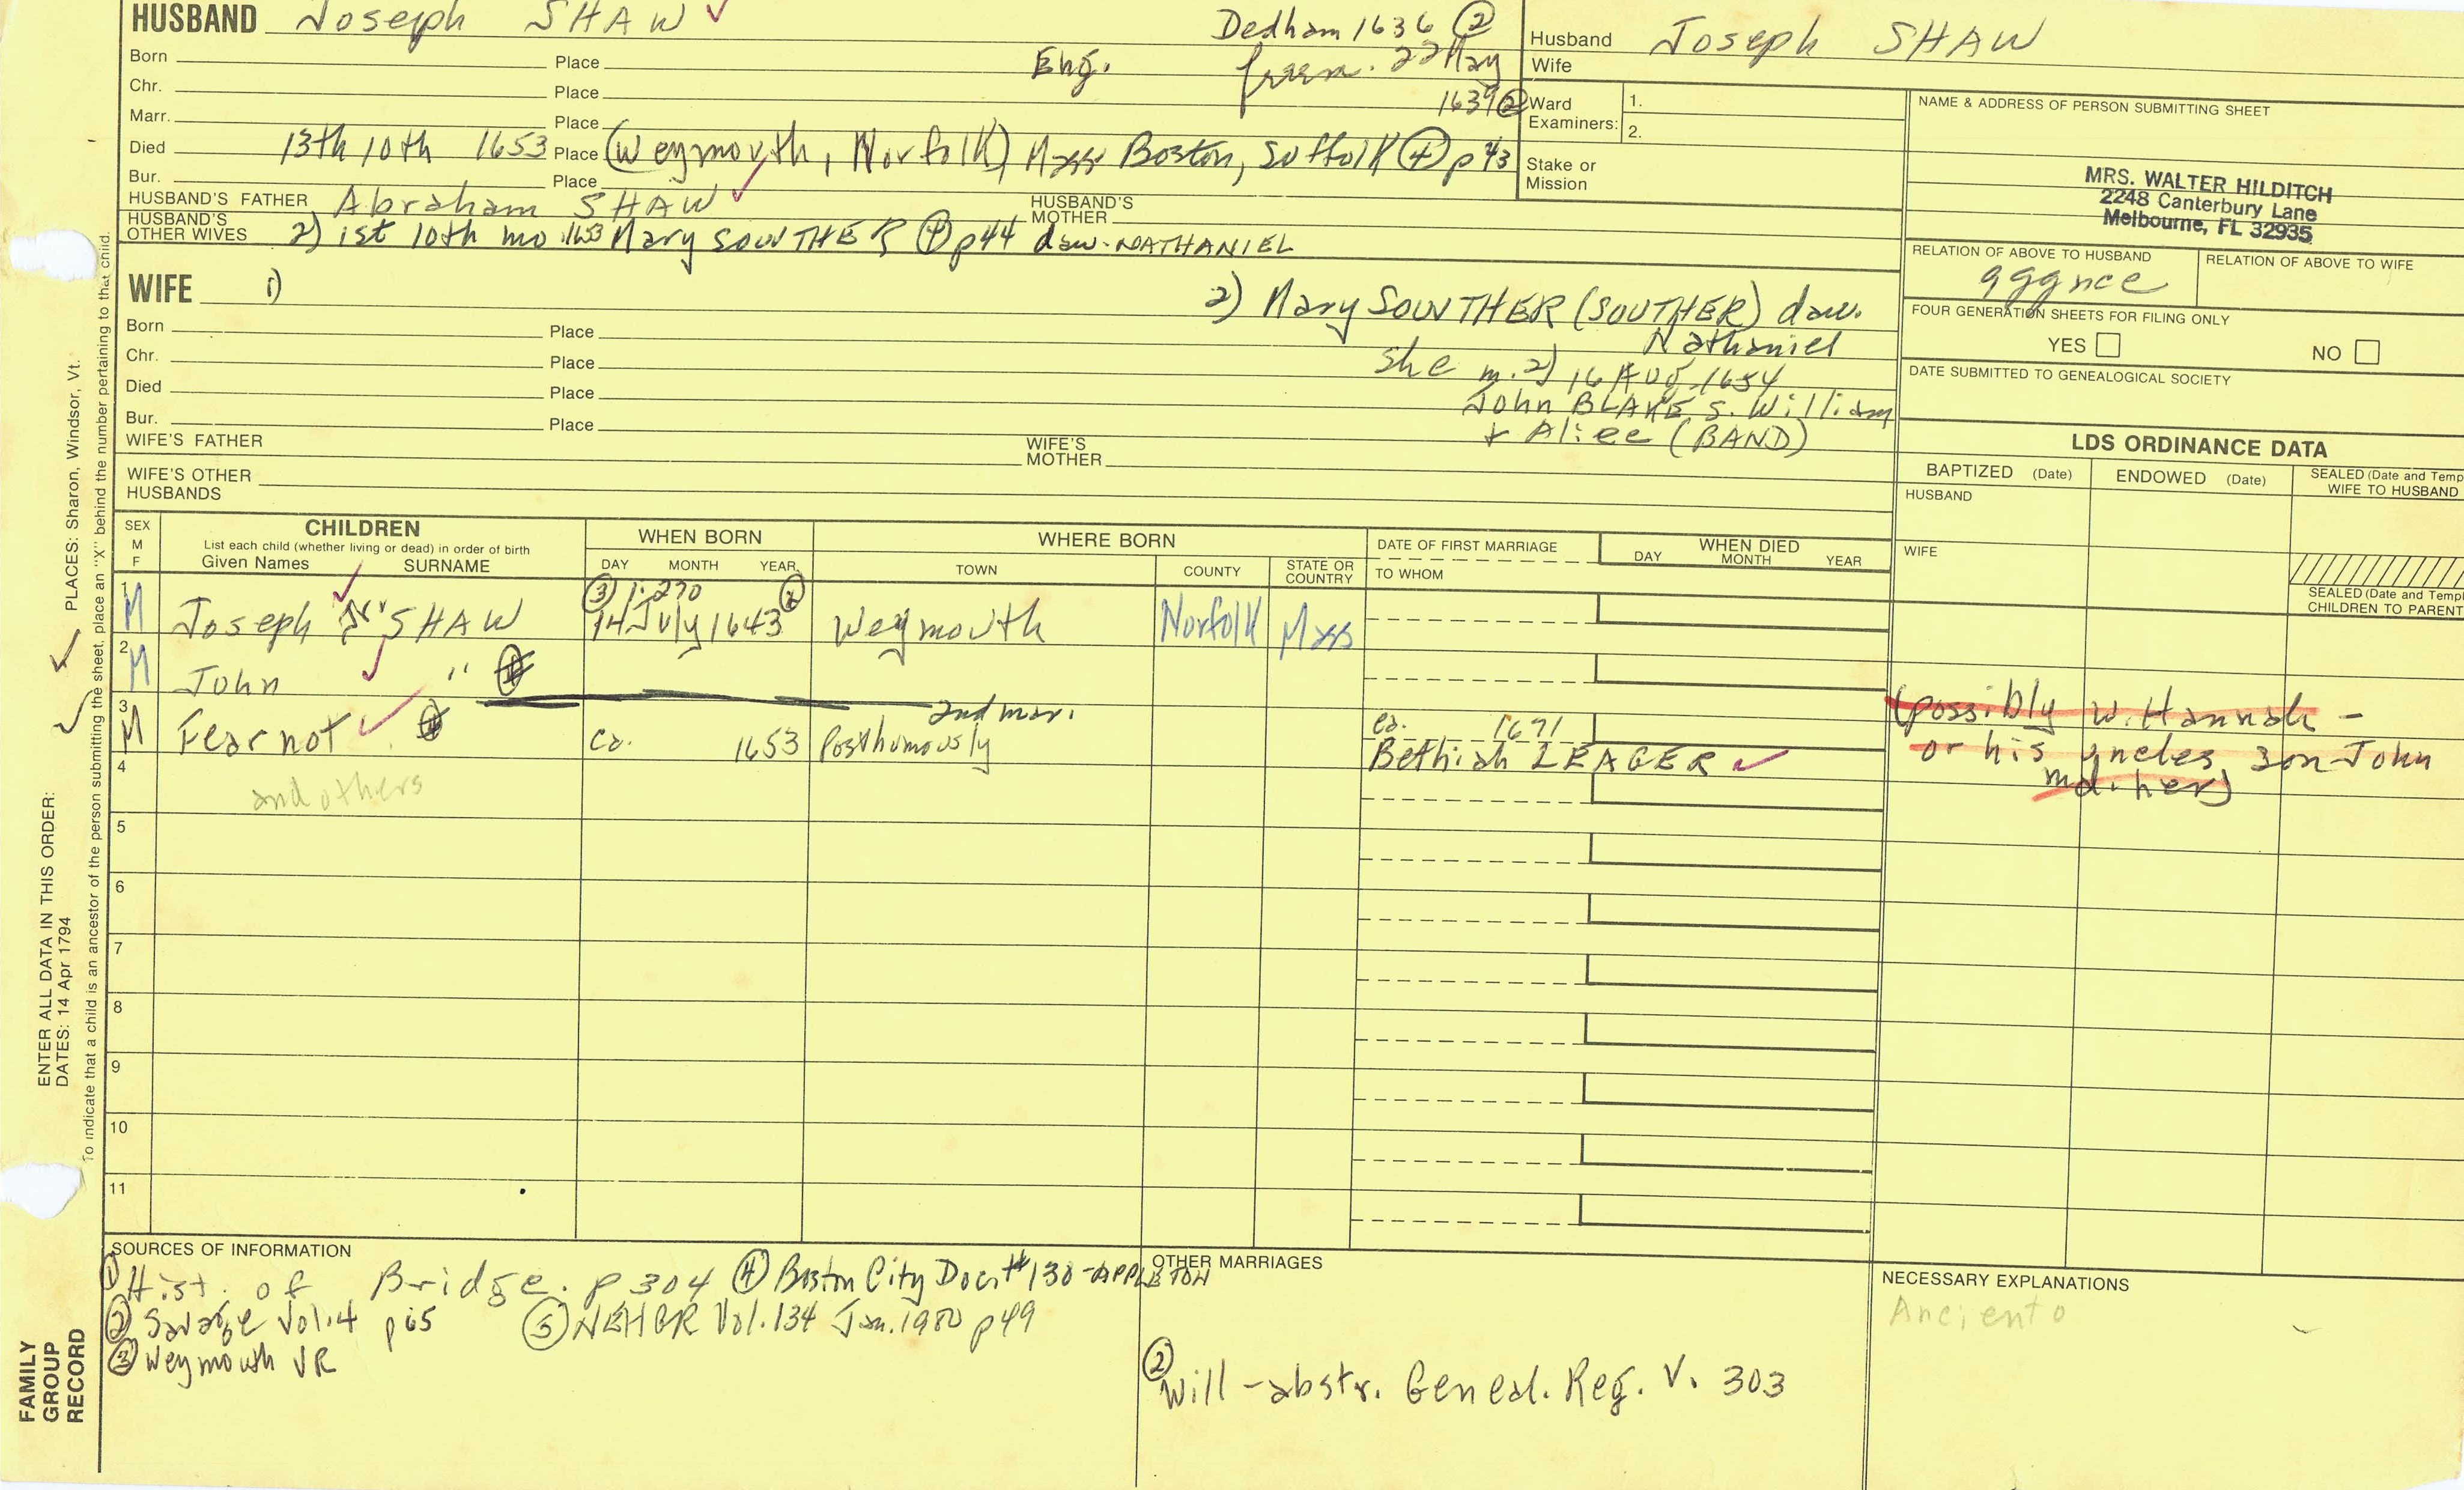 HUSBAND Joseph SHAW
Dedham 1636 ②
Born Place Eng. freem. 22 May
Chr. Place 1639 ②
Marr. Place
Died 13th 10th 1653 Place (Weymouth, Norfolk) Mass Boston, Suffolk ④ p 43
Bur. Place
HUSBAND'S FATHER Abraham SHAW HUSBAND'S MOTHER
HUSBAND'S OTHER WIVES 2) 1st 10th mo 1653 Mary SOUTHER ④ p44 dau. NATHANIEL
WIFE 1) 2) Mary SOWTHER (SOUTHER) dau.
Nathaniel
Born Place
She m. 2) 16 AUG. 1654
Chr. Place
John BLAKE s. William
Died Place
+ Alice (BAND)
Bur. Place
WIFE'S FATHER WIFE'S MOTHER
WIFE'S OTHER HUSBANDS
Husband Joseph SHAW
Wife
Ward Examiners: 1.
2.
Stake or Mission
NAME & ADDRESS OF PERSON SUBMITTING SHEET
MRS. WALTER HILDITCH
2248 Canterbury Lane
Melbourne, FL 32935
RELATION OF ABOVE TO HUSBAND RELATION OF ABOVE TO WIFE
gggnce
FOUR GENERATION SHEETS FOR FILING ONLY
YES NO
DATE SUBMITTED TO GENEALOGICAL SOCIETY
LDS ORDINANCE DATA
BAPTIZED (Date) ENDOWED (Date) SEALED (Date and Temp
WIFE TO HUSBAND
HUSBAND
WIFE
SEALED (Date and Templ
CHILDREN TO PARENT
SEX M F CHILDREN WHEN BORN WHERE BORN DATE OF FIRST MARRIAGE WHEN DIED
List each child (whether living or dead) in order of birth
Given Names SURNAME DAY MONTH YEAR TOWN COUNTY STATE OR COUNTRY TO WHOM DAY MONTH YEAR
③ 1:270 ②
1 M Joseph Jr. SHAW 14 July 1643 Weymouth Norfolk Mass
2 M John "
2nd mar.
3 M Fearnot ca. 1653 Posthumously ca. 1671
Bethiah LEAGER
(possibly w. Hannah -
or his uncles son John
md. her)
4 and others
5
6
7
8
9
10
11
SOURCES OF INFORMATION
① Hist. of Bridge. p 304 ④ Boston City Doc. #130 - APPLETON
② Savage Vol. 4 p 65 ⑤ NEHGR Vol. 134 Jan. 1980 p49
③ Weymouth VR
OTHER MARRIAGES
② Will - abstr. Geneal. Reg. V. 303
NECESSARY EXPLANATIONS
PLACES: Sharon, Windsor, Vt.
To indicate that a child is an ancestor of the person submitting the sheet, place an "X" behind the number pertaining to that child.
ENTER ALL DATA IN THIS ORDER:
DATES: 14 Apr 1794
FAMILY
GROUP
RECORD